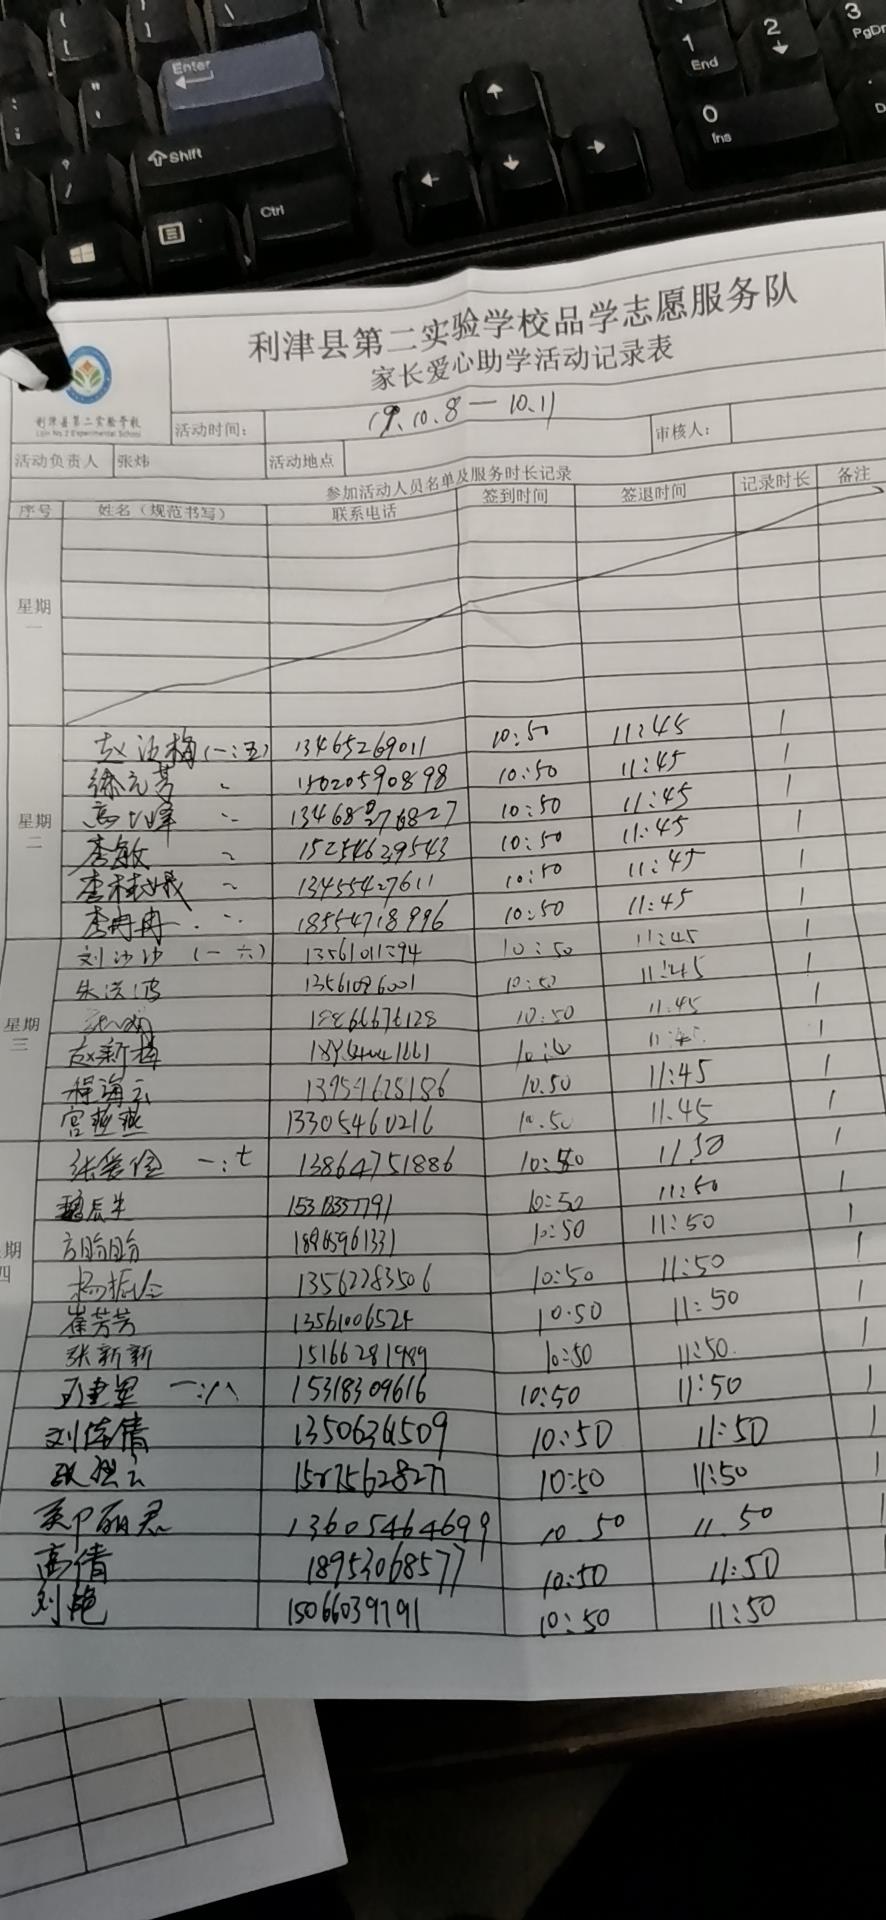 Enter
Shift
Ctrl
1 End
2
3 PgDn
0 Ins
利津县第二实验学校品学志愿服务队
家长爱心助学活动记录表
利津县第二实验学校
Lijin No.2 Experimental School
活动时间： 19.10.8—10.11 审核人：
活动负责人 张炜 活动地点
参加活动人员名单及服务时长记录
序号 姓名（规范书写） 联系电话 签到时间 签退时间 记录时长 备注
星期一
星期二
(一:五) 13465269011 10:50 11:45 1
徐元芳 〃 15020590898 10:50 11:45 1
高 峰 〃 10:50 11:45 1
李敏 〃 15254639543 10:50 11:45 1
李桂娥 〃 13455427611 10:50 11:45 1
李冉冉 〃 18554718996 10:50 11:45 1
星期三
刘沙沙 (一 六) 10:50 11:45 1
朱洪波 10:50 11:45 1
10:50 11:45 1
赵新梅 1
程海云 13954625186 10.50 11:45 1
宫燕燕 13305460216 10.50 11.45 1
期四
张爱俭 一:七 13864751886 10:50 11.50 1
辰生 10:50 11:50 1
方盼盼 10:50 11:50 1
杨振 13562283506 10:50 11:50 1
崔芳芳 10.50 11:50 1
张新新 15166281989 10:50 11:50 1
王建军 一:八 15318309616 10:50 11:50 1
刘倩倩 10:50 11:50 1
10:50 11:50 1
丽君 13605464699 10 50 11.50 1
高倩 18953068577 10:50 11:50 1
刘艳 15066039791 10:50 11:50